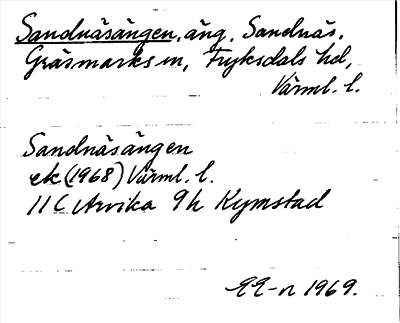 Sandnäsängen, äng, Sandnäs,
Gräsmarks sn, Fryksdals hd,
Värml. l.
Sandnäsängen
ek (1968) Värml. l.
11C Arvika 9h Kymstad
EE-n 1969.